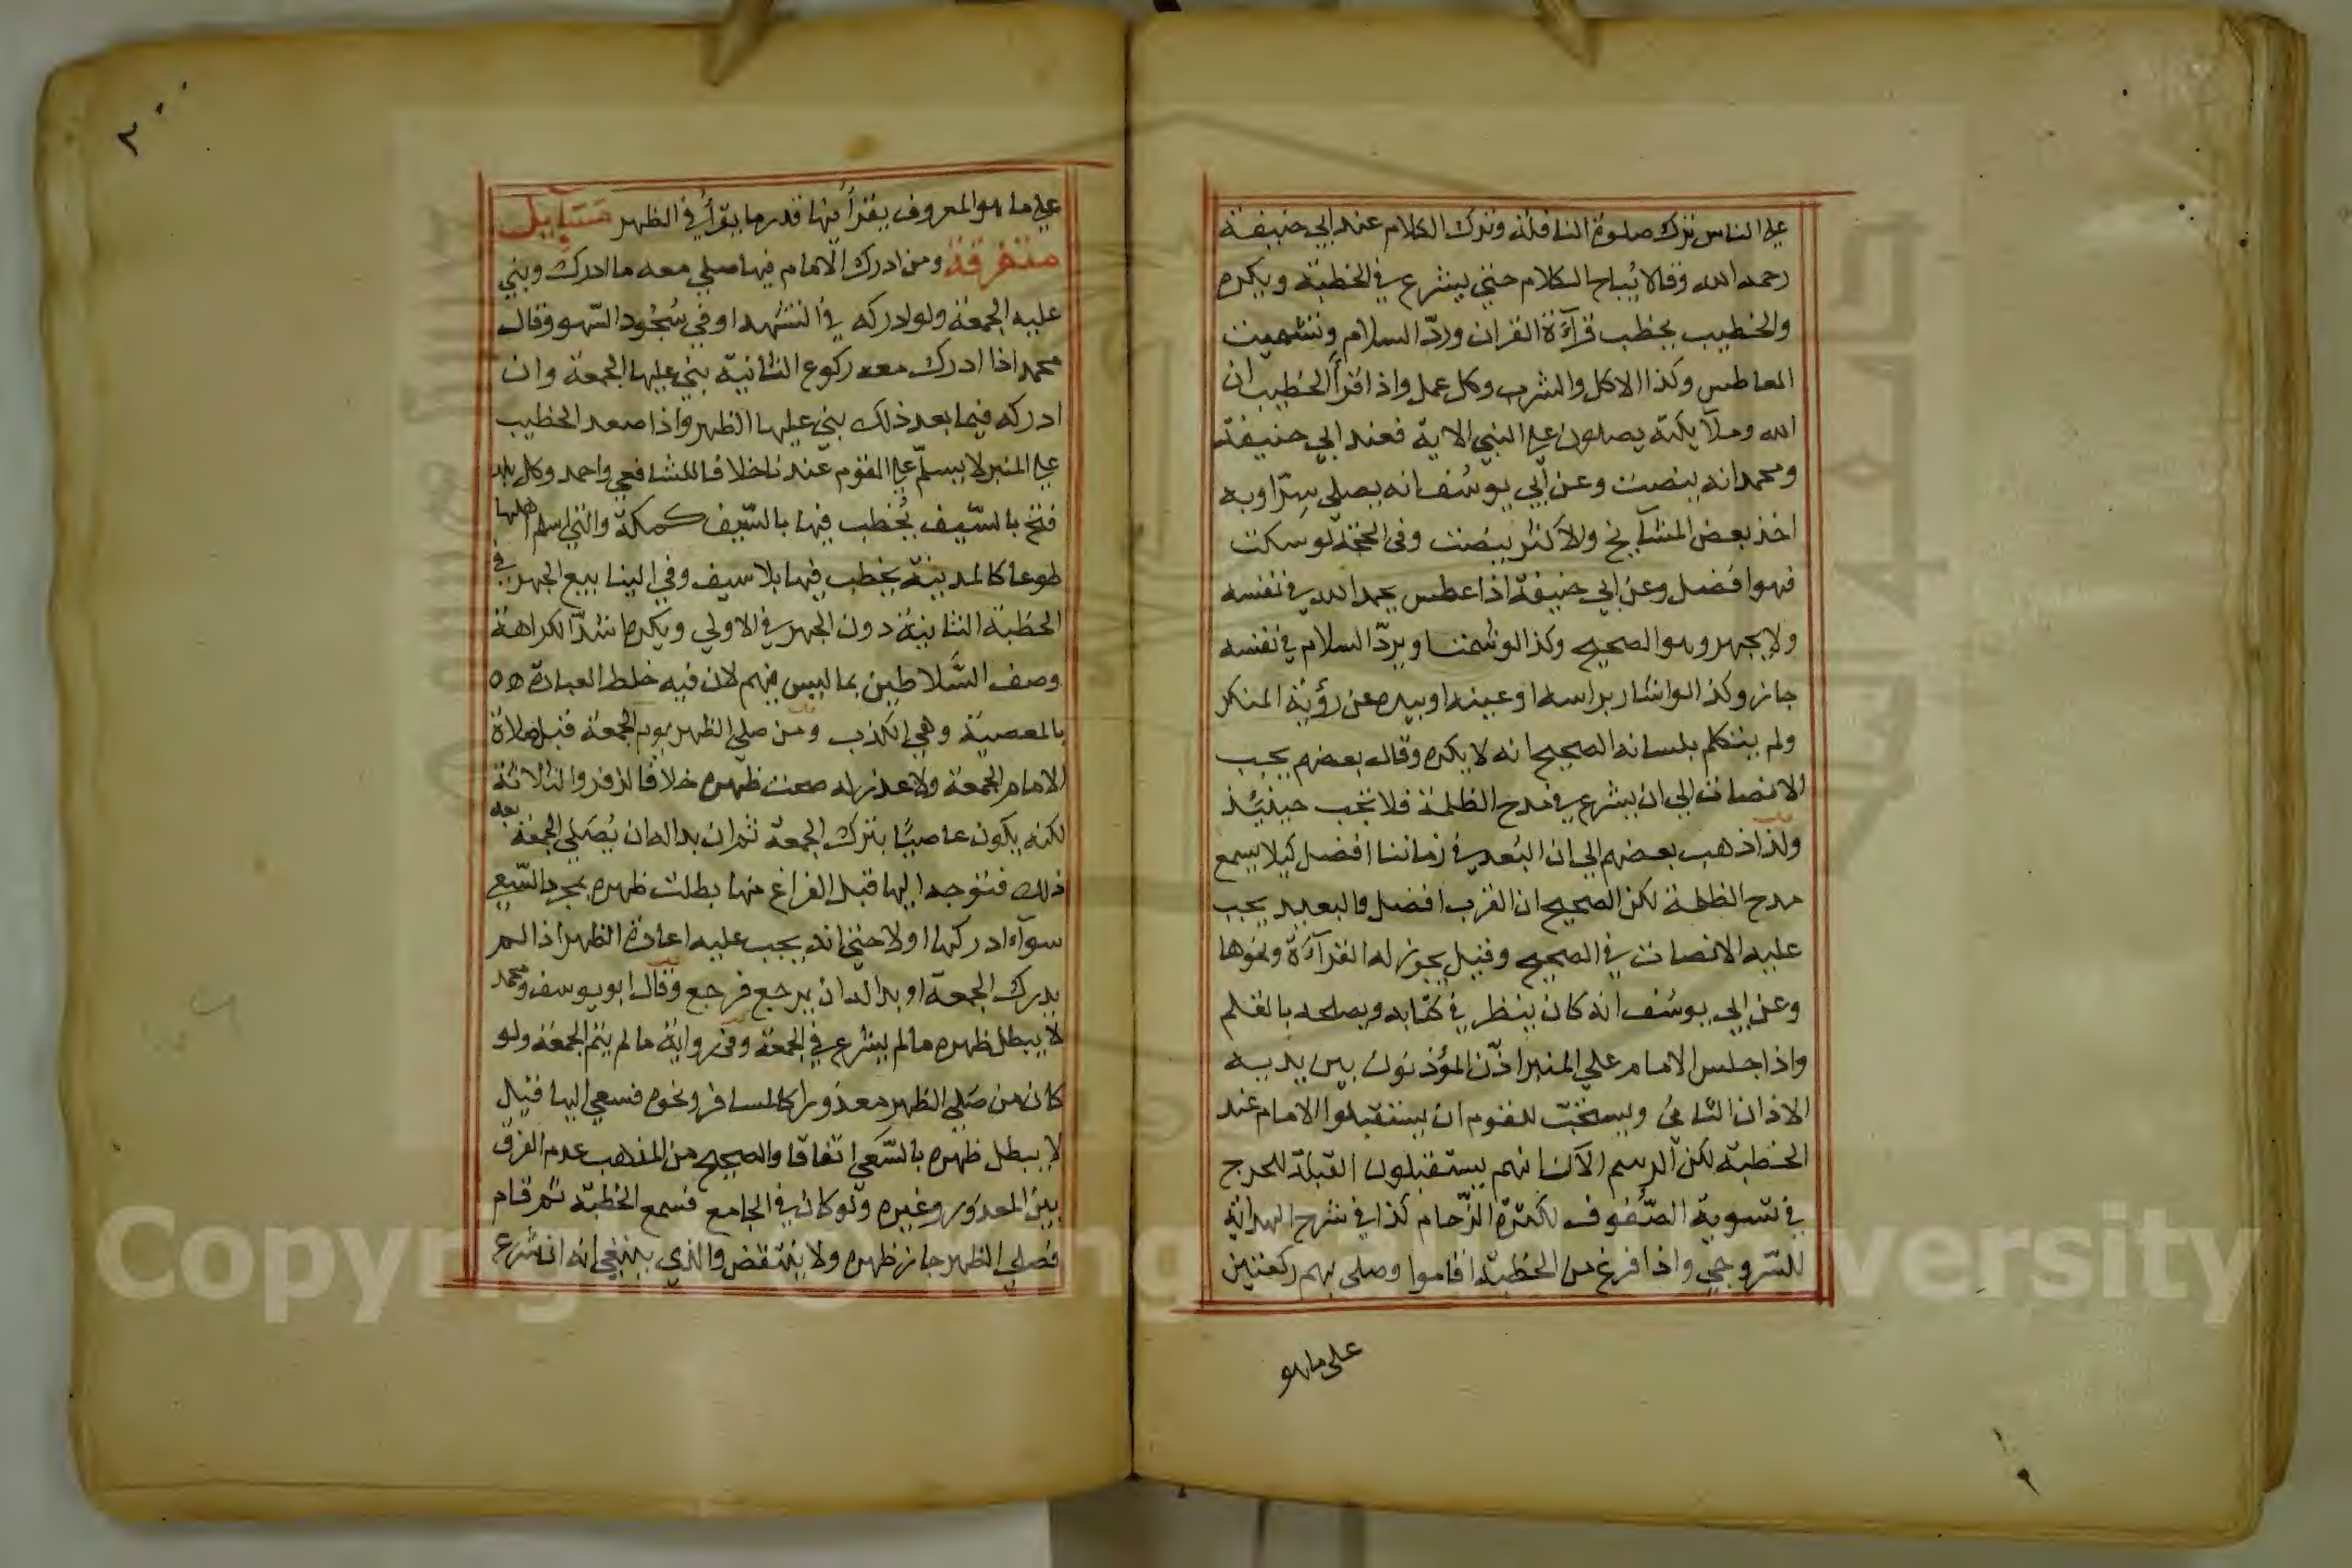 على الناس ترك صلوة النافلة وترك الكلام عند ابي حنيفة
رحمه الله وقالا يُباح الكلام حتى يشرع في الخطبة ويكره
والخطيب يخطب قرآءة القران وردّ السلام وتشميت
العاطس وكذا الاكل والشرب وكل عمل واذا قرأ الخطيب ان
الله وملآيكته يصلون على النبي الاية فعند ابي حنيفة
ومحمد انه ينصت وعن ابي يوسُف انه يصلي سِرّا وبه
اخذ بعض المشايخ والاكثر ينصت وفي الحجة لو سكت
فهو افضل وعن ابي حنيفة اذا عطس يحمد الله في نفسه
ولا يجهر وهو الصحيح وكذا لو شمت ويردّ السلام في نفسه
جاز وكذا لو اشار براسه او عينه او بيده عن رؤية المنكر
ولم يتكلم بلسانه الصحيح انه لا يكره وقال بعضهم يجب
الانصات الى ان يشرع في مدح الظلمة فلا تجب حينئذ
ولذا ذهب بعضهم الى ان البُعد في زماننا افضل كيلا يسمع
مدح الظلمة لكن الصحيح ان القرب افضل والبعيد يجب
عليه الانصات في الصحيح وقيل يجوز له القرآءة ونحوها
وعن ابي يوسُف انه كان ينظر في كتابه ويصلحه بالقلم
واذا جلس الامام على المنبر اذّن المؤذنون بين يديه
الاذان الثاني ويستحب للقوم ان يستقبلوا الامام عند
الخطبة لكن الرسم الآن انهم يستقبلون القبلة للحرج
في تسوية الصّفوف لكثرة الزّحام كذا في شرح الهداية
للسّروجي واذا فرغ من الخطبة اقاموا وصلى بهم ركعتين
على ماهو
٣٠
على ما هو المعروف يقرأ فيها قدر ما يقرأ في الظهر مسايل
متفرقة ومن ادرك الامام فيها صلى معه ما ادرك وبنى
عليه الجمعة ولو ادركه في التشهد او في سُجُود السّهو وقال
محمد اذا ادرك معه ركوع الثانية بنى عليها الجمعة وان
ادركه فيما بعد ذلك بنى عليها الظهر واذا صعد الخطيب
على المنبر لا يسلّم على القوم عندنا خلافا للشافعي واحمد وكل بلد
فتح بالسّيف يُخطب فيها بالسّيف كمكة والتي اسلم اهلها
طوعا كالمدينة يخطب فيها بلا سيف وفي الينابيع الجهر في
الخطبة الثانية دون الجهر في الاولى ويكره اشدّ الكراهة
وصف السَّلاطين بما ليس فيهم لان فيه خلط العبادة
بالمعصية وهي الكذب ومن صلى الظهر يوم الجمعة قبل صلاة
الامام الجمعة ولا عذر له صحت ظهره خلافا لزفر والثلاثة
لكنه يكون عاصيًا بترك الجمعة ثم ان بدا له ان يُصَلي الجمعة بعد
ذلك فتوجه اليها قبل الفراغ منها بطلت ظهره بمجرد السّعي
سوآء ادركها او لا حتى انه يجب عليه اعادة الظهر اذا لم
يدرك الجمعة او بدا له ان يرجع فرجع وقال ابو يوسف ومحمد
لا يبطل ظهره ما لم يشرع في الجمعة وفي رواية ما لم يتم الجمعة ولو
كان من صَلى الظهر معذورا كالمسافر ونحوه فسعى اليها قيل
لا يبطل ظهره بالسَّعي اتفاقا والصحيح من المذهب عدم الفرق
بين المعذور وغيره ولو كان في الجامع فسمع الخطبة ثم قام
فصلى الظهر جاز ظهره ولا ينتقض والذي ينبغي انه ان شرع
Copyright © King Saud University